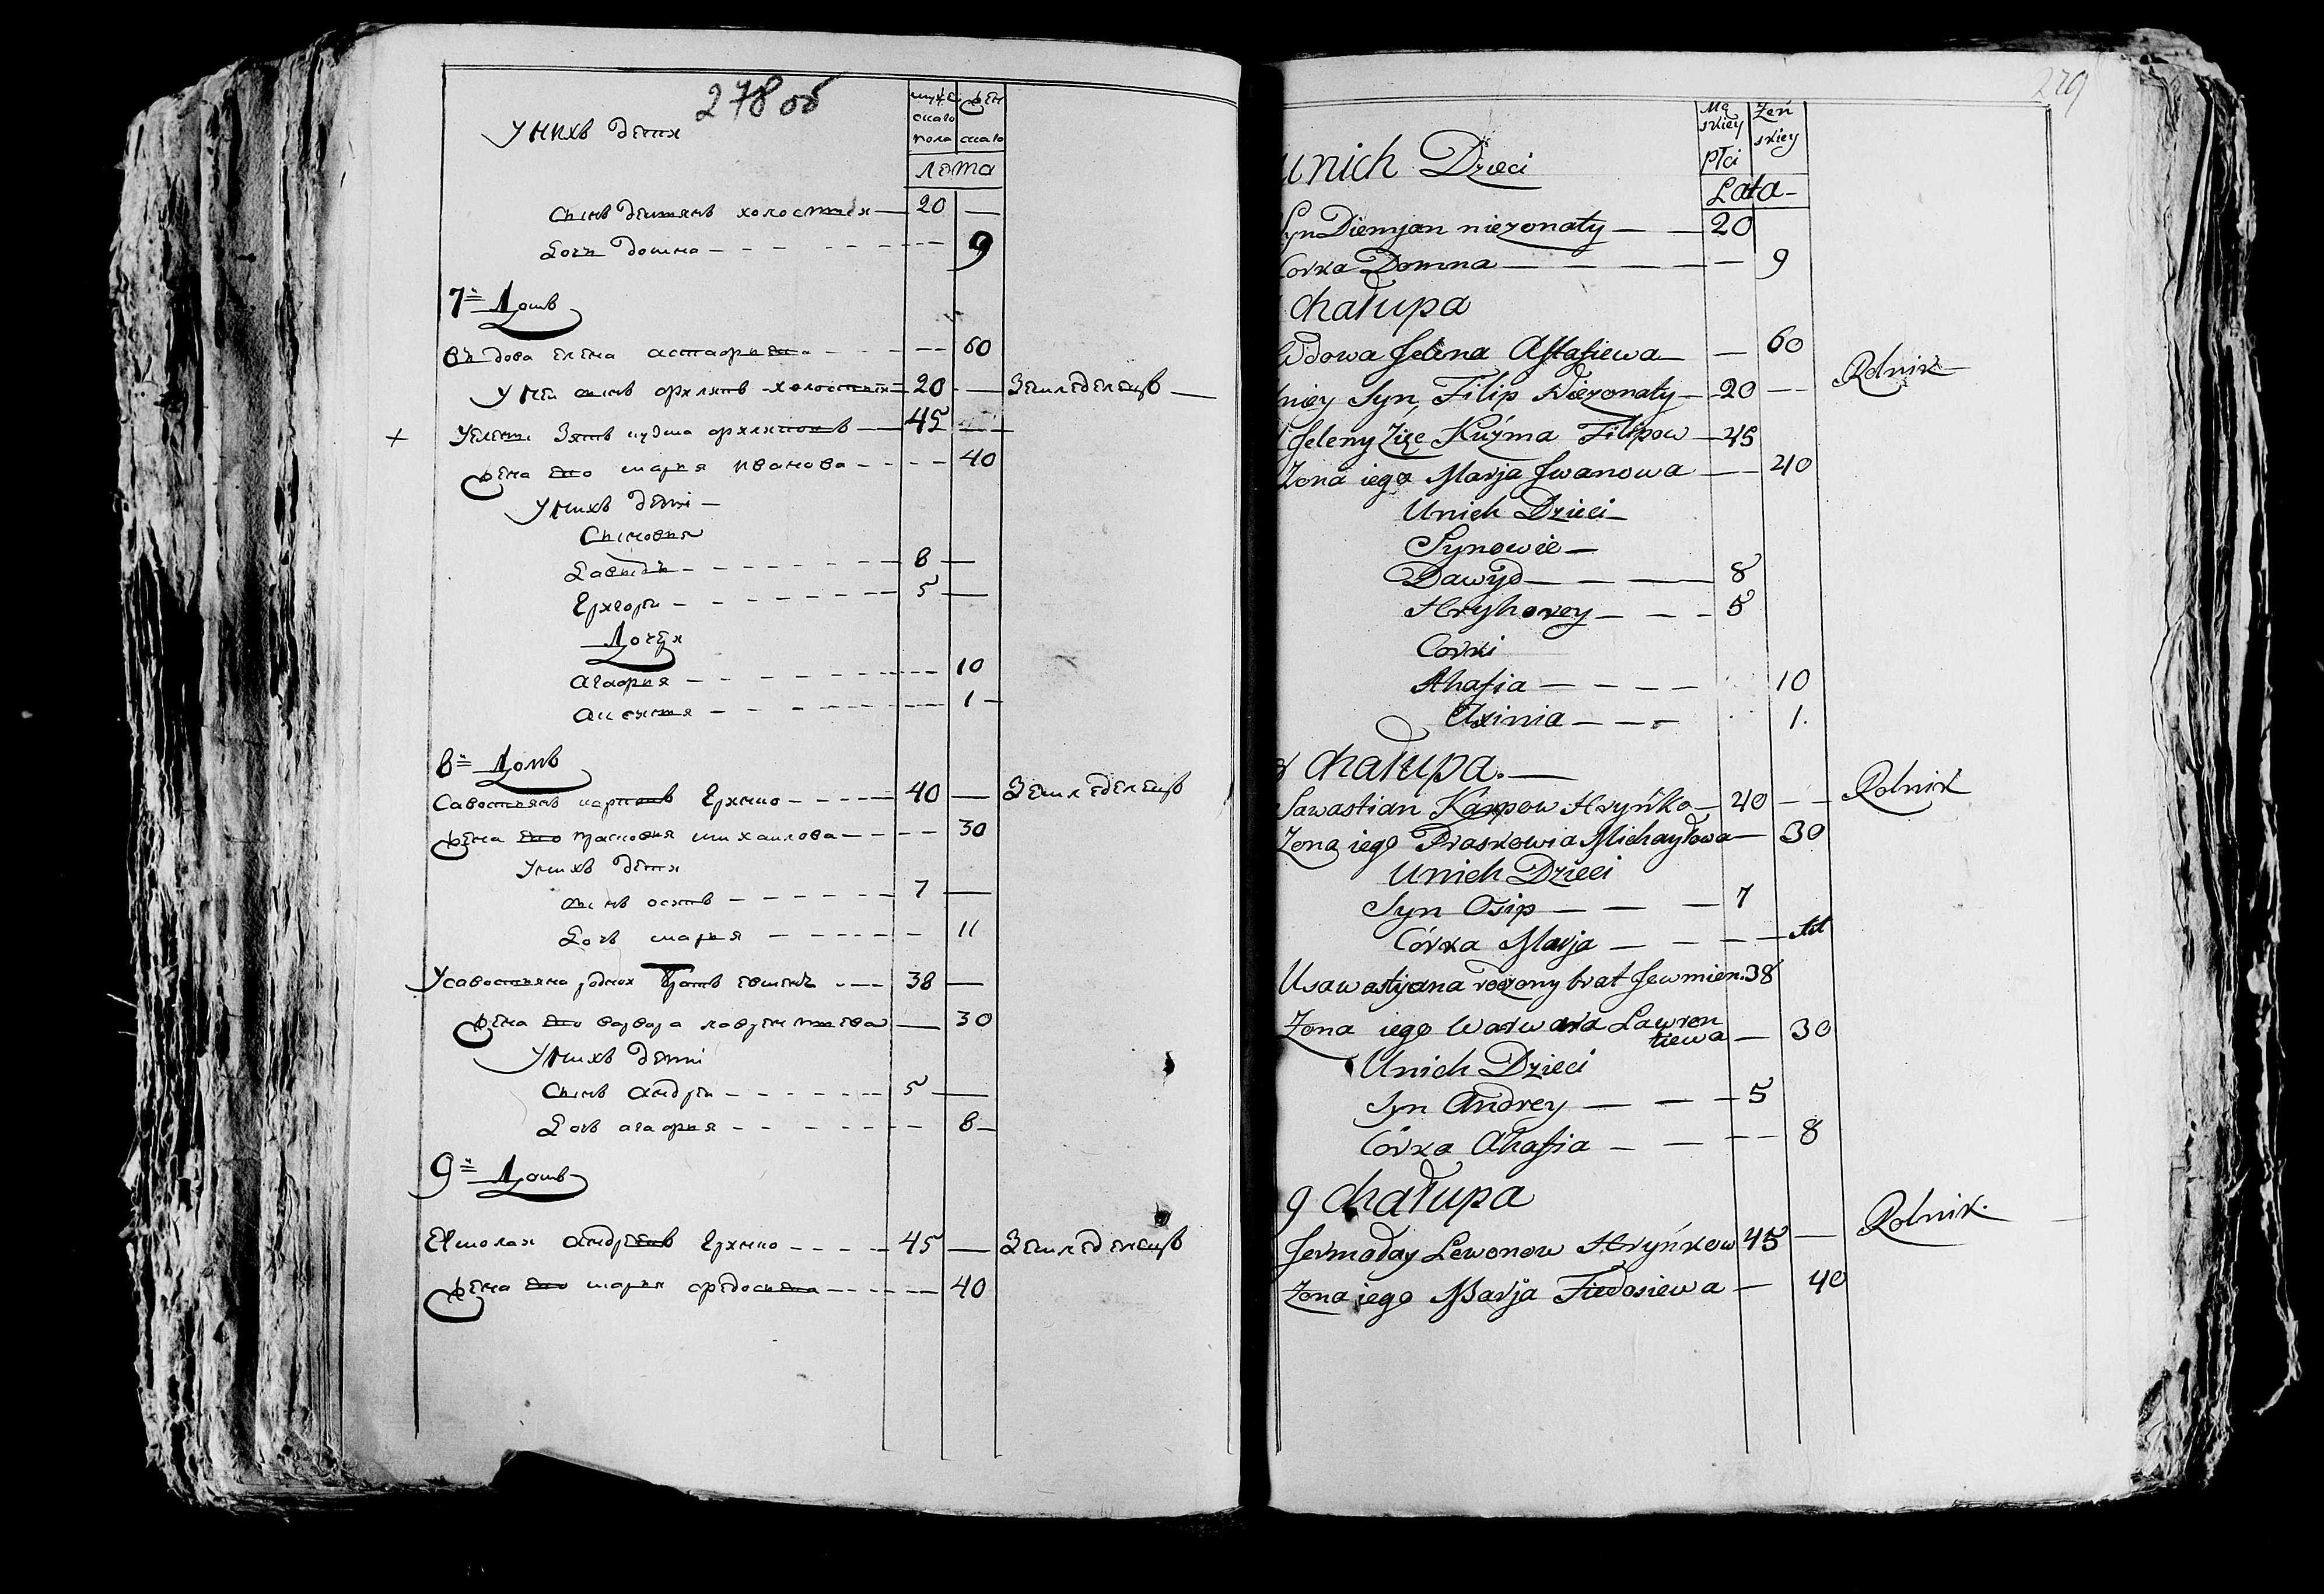 278 об
У нихъ дети
мужес
скаго
пола
жен
скаго
лета
Сынъ демянъ холостыи — 20 —
Дочь домна - - - 9
7й Домъ
Въдова елена астафиева - - - 60
У неи сынъ филипъ холостыи 20 — Земледелецъ —
+ У елены Зять кузма филиповъ — 45 —
жена его мария иванова - - - 40
У нихъ дети —
Сыновия
Давыдъ - - - 8 —
Григори - - - 5 —
Дочери
агафия - - - 10
аксиния - - - 1 —
8й Домъ
Савостиянъ карповъ Гринко - - - 40 — Земледелецъ
жена его прасковия михаилова - - - 30
У нихъ дети
сынъ осипъ - - - 7 —
Дочь мария - - - 11
У савостияна родной братъ евмень - - 38 —
жена его варвара лаврентиева — 30
У нихъ дети
Сынъ андреи - - - 5 —
Дочь агафия - - - 8 —
9й Домъ
Ермолаи Гринко - - - 45 — Земледелецъ
жена его мария федосиева - - - 40
279
Mę
skiey
Płci
Żeń
skiey
Lata -
unich Dzieci
Syn Diemjan nieżonaty — — 20
Corka Domna — — — 9
chałupa
Wdowa Jelena Astafiewa — — 60
niey Syn, Filip Nieżonaty — 20 — — Rolnik —
Jeleny Zięc Kuźma Filipow — 45
Żona iego Marja Iwanowa — — 40
Unich Dzieci —
Synowie —
Dawyd — — — 8
Hryhorey — — — 5
Corki
Ahafia — — — — 10
Axinia — — — 1.
8 chałupa. —
Sawastian Karpow Hryńko — 40 — — Rolnik
Żona iego Praskowia Michayłowa — 30
Unich Dzieci
Syn Osip — — — 7
Córka Marja — — — — 11
Usawastyana rodzony brat Jewmien. 38
Żona iego Warwara Lawren
tiewa — 30
Unich Dzieci
Syn Andrey — — — 5
Córka Ahafia — — — — 8
9 chałupa
Jermołay Lewonow Hryńkow 45 — Rolnik.
Żona iego Marja Fiedosiewa — 40